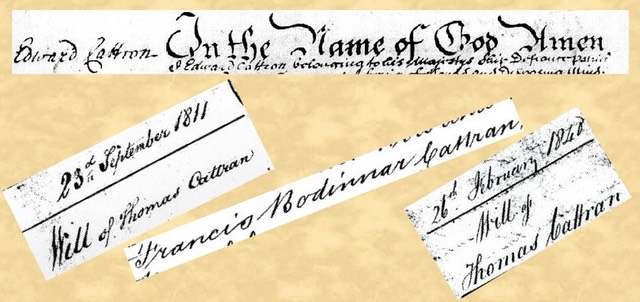 Edward Cattron In the Name of God Amen.
I Edward Cattron belonging to his Majestys Ship Defiance
and
23d September 1811
Will of Thomas Cattran
Francis Bodinnar Cattran,
26th February 1848
Will of
Thomas Cattran